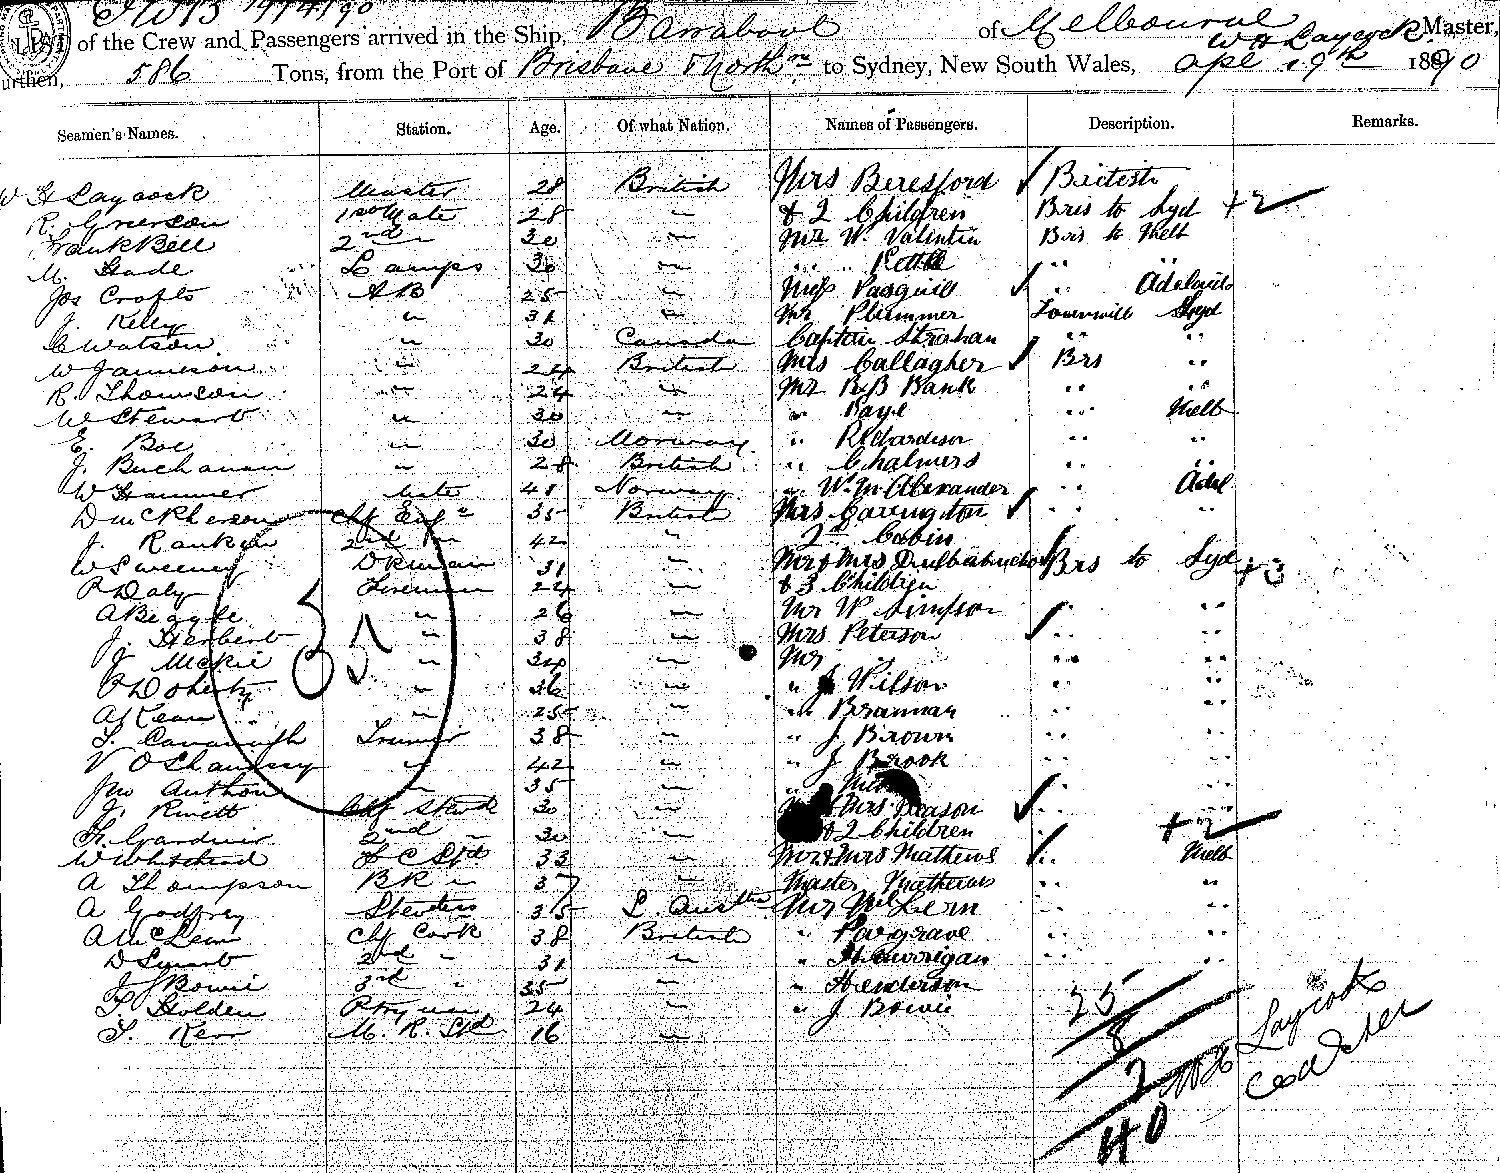 Barrabool of Melbourne W H Laycock Master,
LIST of the Crew and Passengers arrived in the Ship,
586 Tons, from the Port of Brisbane & North to Sydney, New South Wales, Apl 19th 1890
Seamen's Names. Station. Age. Of what Nation. Names of Passengers. Description. Remarks.
W H Laycock Master 28 British Mrs Beresford British
R. Grierson 1st Mate 28 " & 2 Children Bris to Syd +2
Frank Bell 2nd " 30 " Mr W. Valintin Bris to Melb
M. Slade Lamps 36 " " " "
Jos Crofts AB 25 " Miss Pasquill " Adelaide
J. Kelly " 31 " Mr Plummer Townsville Syd
C Watson " 30 Canada Captain Strahan " "
W Jamieson " 24 British Mrs Gallagher Brs "
R. Thomson " 24 " Mr R B Bank " "
W Stewart " 30 " " Kaye " Melb
E. Boe " 30 Norway " Richardson " "
J. Buchanan " 28 British " Chalmers " "
W Hammer 48 Norway " W. M. Alexander " Adel
D McPherson Chf Engr 35 British Mrs Carrington " "
J. Rankin 2nd " 42 " 2nd Cabin
W Sweeney Dkman 31 " Mr & Mrs Brs to Syd +3
P Daly Fireman 24 " & 3 Children
A Beggle " 26 " Mr W Simpson " "
J. Herbert " 38 " Mrs Peterson " "
J McKie " 34 " Mr " " "
P Doherty " 36 " " J Wilson " "
A Kean " 25 " " Brannan " "
T. Cavanagh Trimmer 38 " " J Brown " "
V O'Shaunssy " 42 " " J Brook " "
Jno Anthon " 35 " " " "
J. Rivett Chf Stewd 30 " Mrs Deason " "
H. Gardner 2nd " 30 " & 2 Children +2
W Whitehead F C Std 33 " Mr & Mrs Mathews " Melb
A Thompson BK " 37 " Master Mathews " "
A Godfrey Stewdess 35 S. Austla Mr " "
A McLean Chf Cook 38 British " Pargrave " "
D Smart 2nd " 31 " " H Currigan " "
J J Bowie 3rd " 35 " " Henderson
T. Holden Ptryman 24 " " J Bowie
T. Kerr M. R. Std 16 "
35
25
8
7
40
W H Laycock